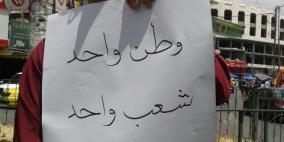 وطن واحد
شعب واحد